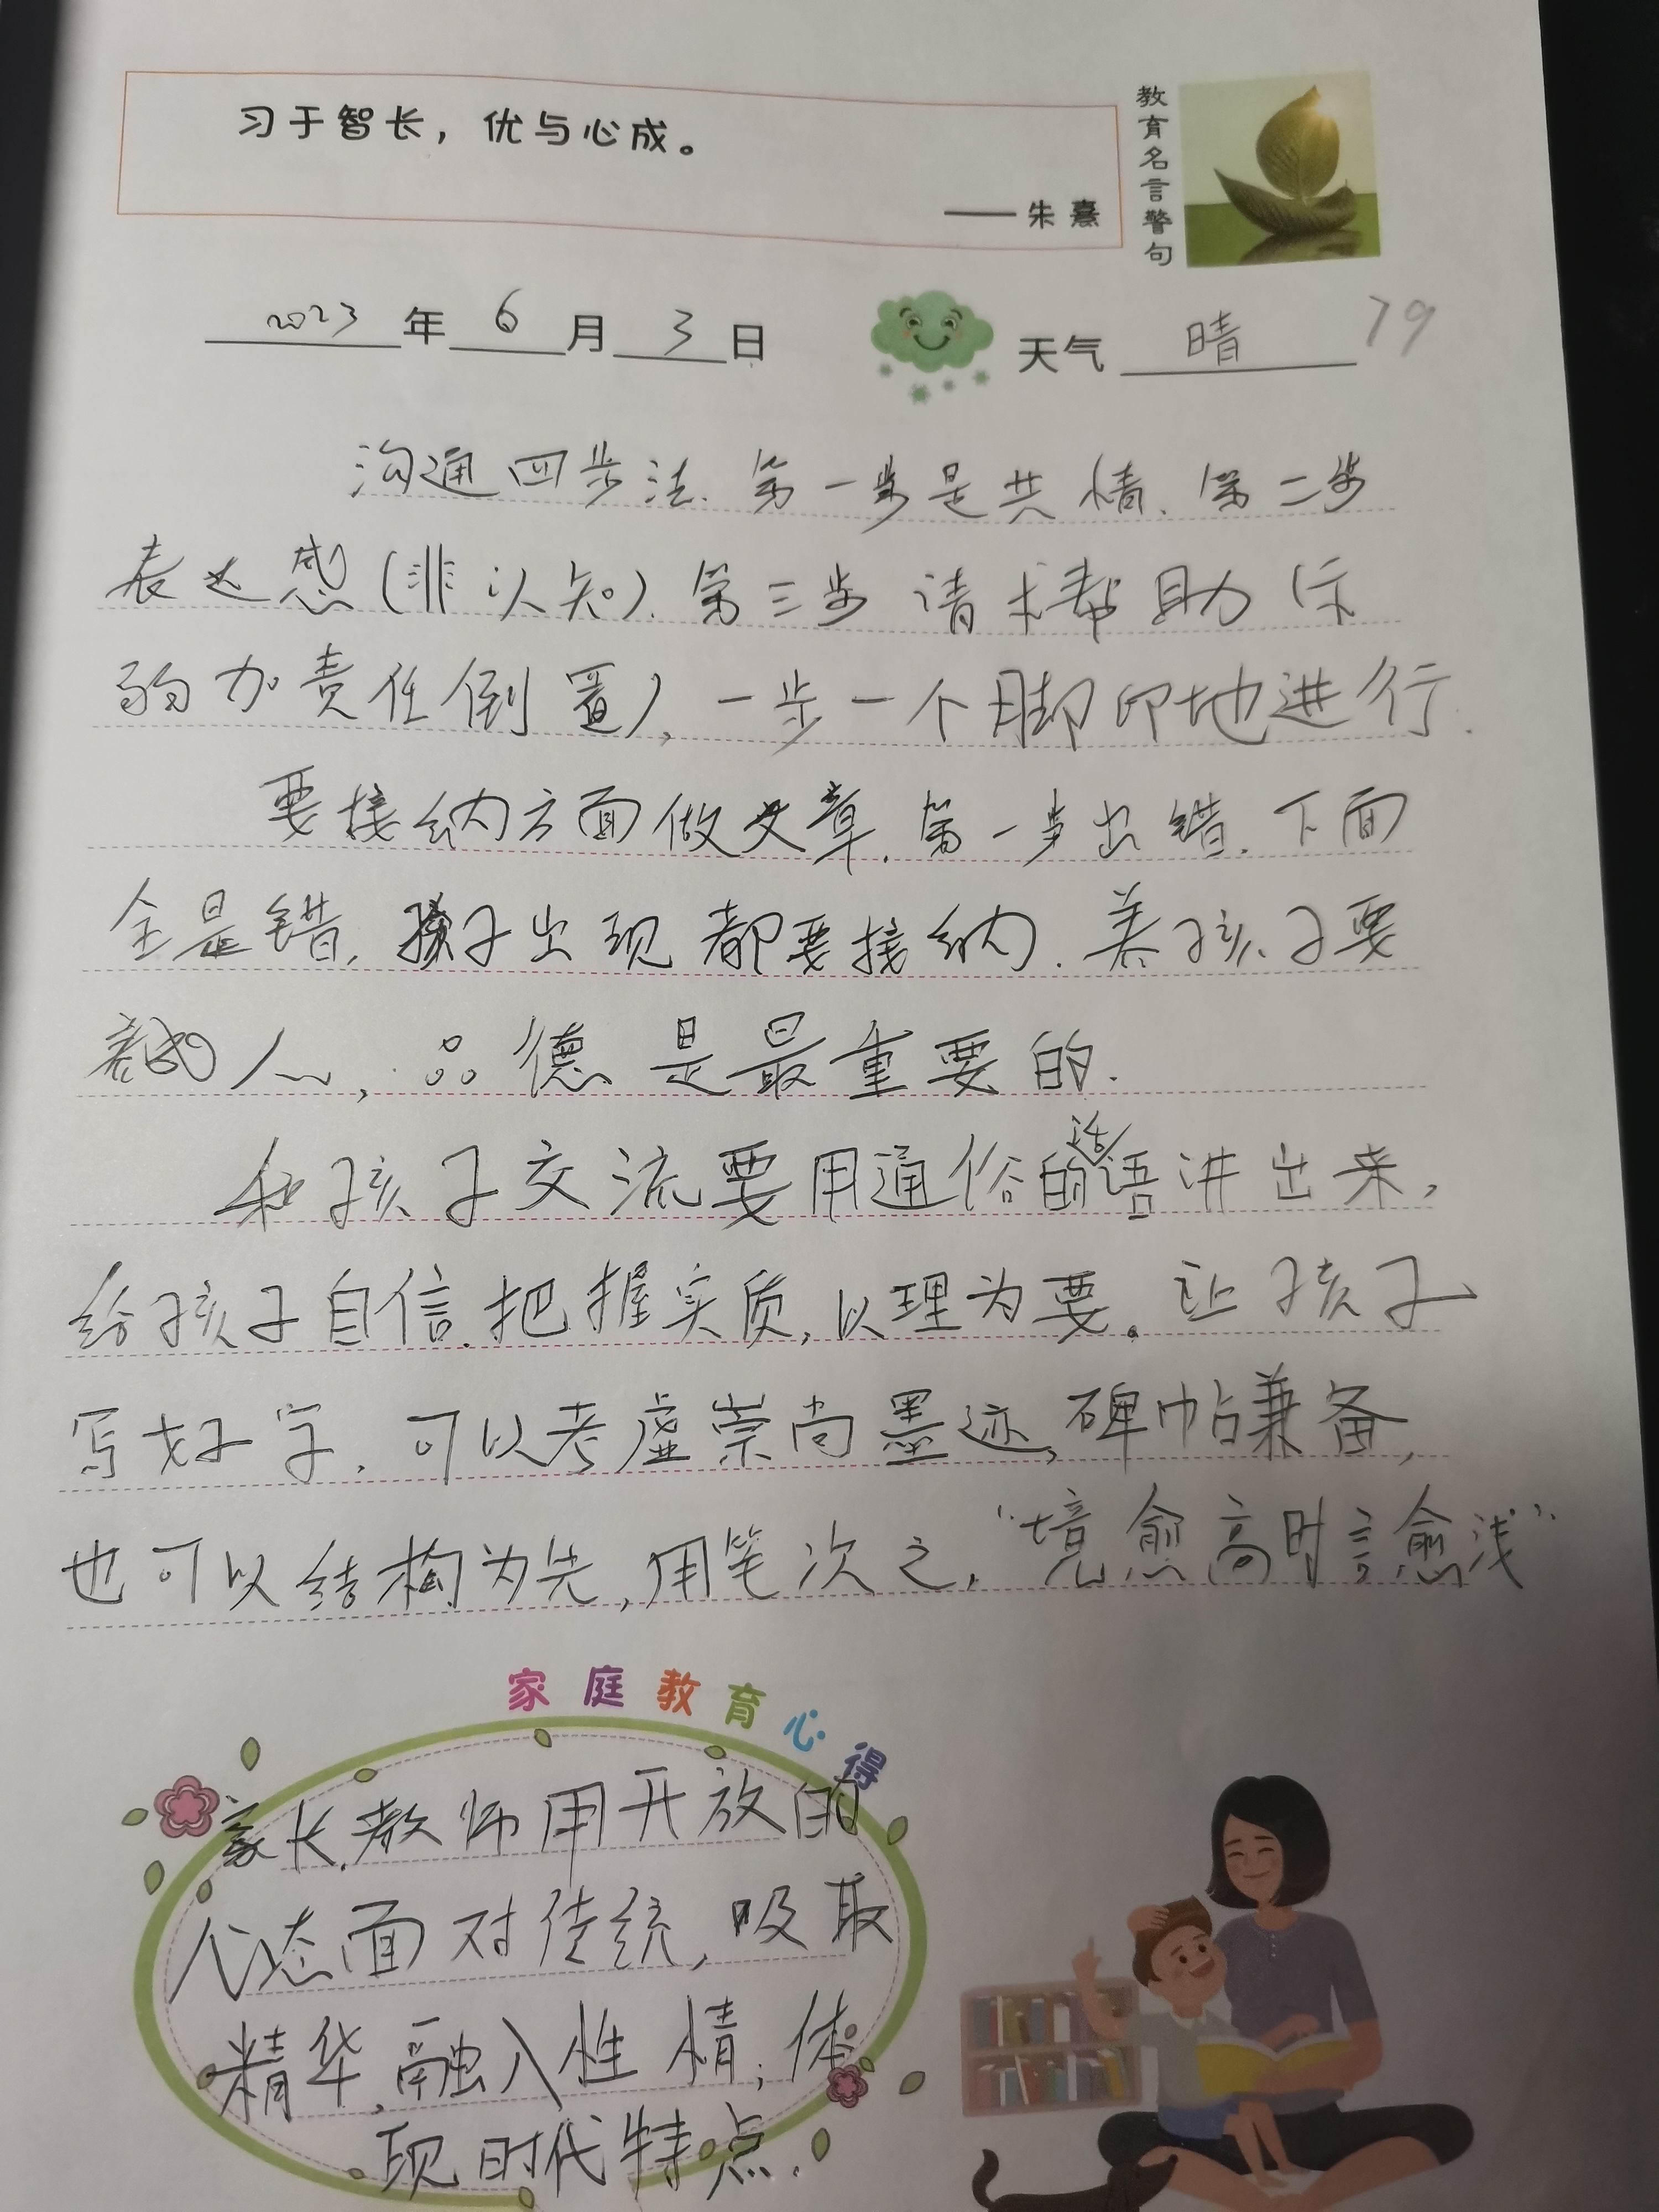 习于智长，优与心成。
——朱熹
教育名言警句
2023年6月3日 天气 晴 79
沟通四步法.第一步是共情.第二步
表达感(非认知).第三步请求帮助(示
弱加责任倒置),一步一个脚印地进行.
要接纳方面做文章.第一步出错.下面
全是错.孩子出现都要接纳.养孩子要
养成人,品德是最重要的.
和孩子交流要用通俗的话语讲出来,
给孩子自信.把握实质,以理为要。让孩子
写好字.可以考虑崇尚墨迹,碑帖兼备,
也可以结构为先,用笔次之,“境愈高时言愈浅”
家庭教育心得
家长.教师用开放的
心态面对传统,吸取
精华,融入性情;体
现时代特点.